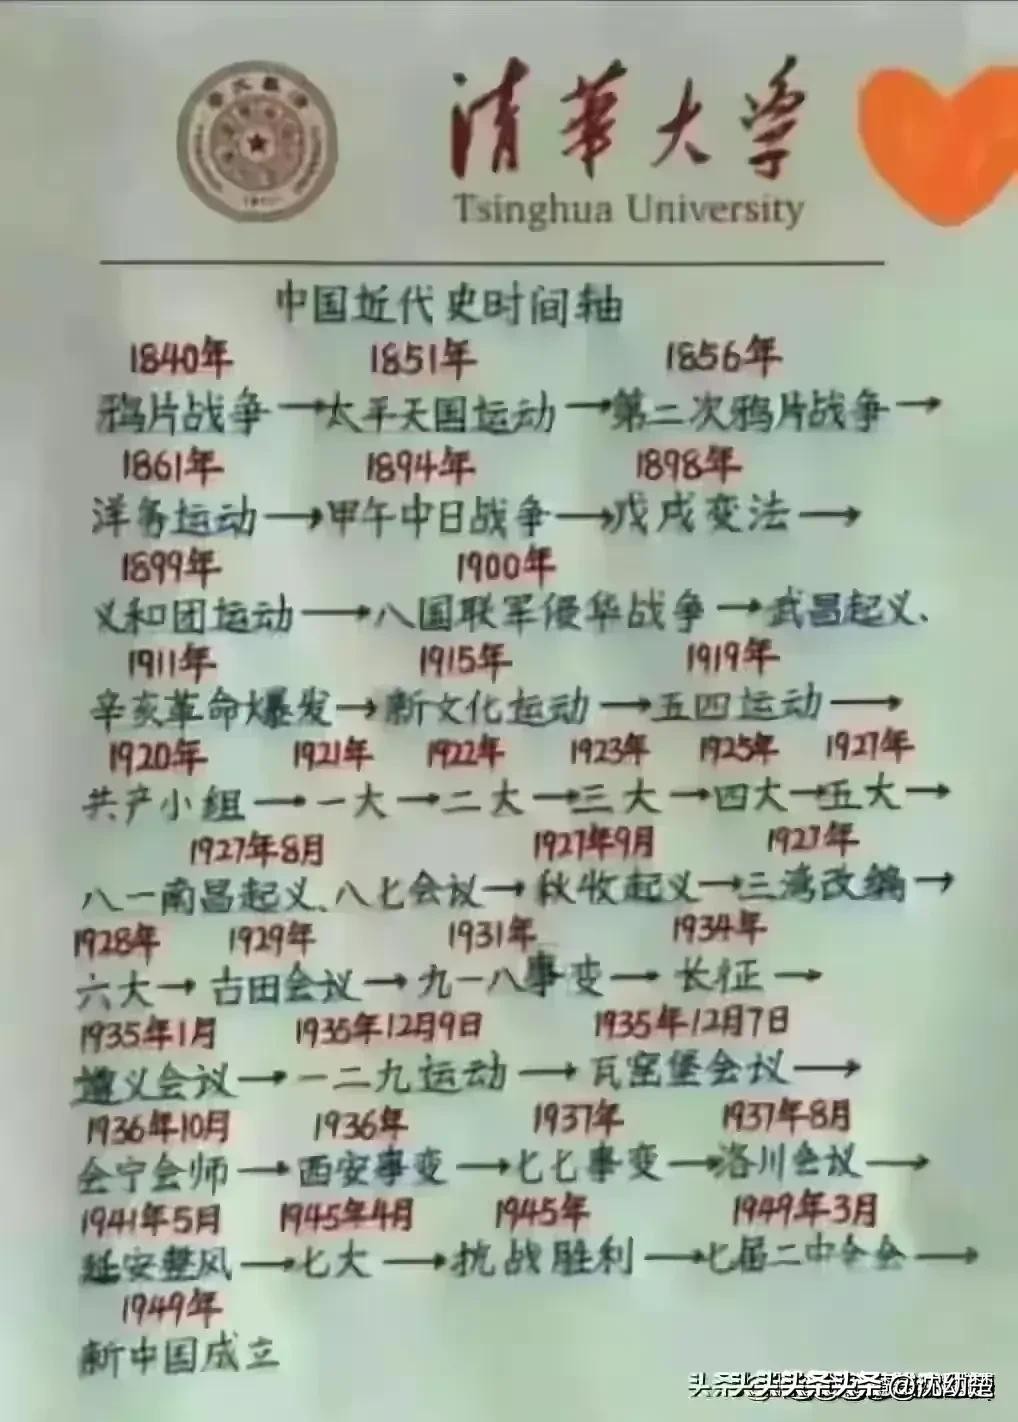 清華大学
Tsinghua University
中国近代史时间轴
1840年 1851年 1856年
鸦片战争→太平天国运动→第二次鸦片战争→
1861年 1894年 1898年
洋务运动→甲午中日战争→戊戌变法→
1899年 1900年
义和团运动→八国联军侵华战争→武昌起义、
1911年 1915年 1919年
辛亥革命爆发→新文化运动→五四运动→
1920年 1921年 1922年 1923年 1925年 1927年
共产小组→一大→二大→三大→四大→五大→
1927年8月 1927年9月 1927年
八一南昌起义、八七会议→秋收起义→三湾改编→
1928年 1929年 1931年 1934年
六大→古田会议→九一八事变→长征→
1935年1月 1935年12月9日 1935年12月7日
遵义会议→一二九运动→瓦窑堡会议→
1936年10月 1936年 1937年 1937年8月
会宁会师→西安事变→七七事变→洛川会议→
1941年5月 1945年4月 1945年 1949年3月
延安整风→七大→抗战胜利→七届二中全会→
1949年
新中国成立
头条@沈幼楚